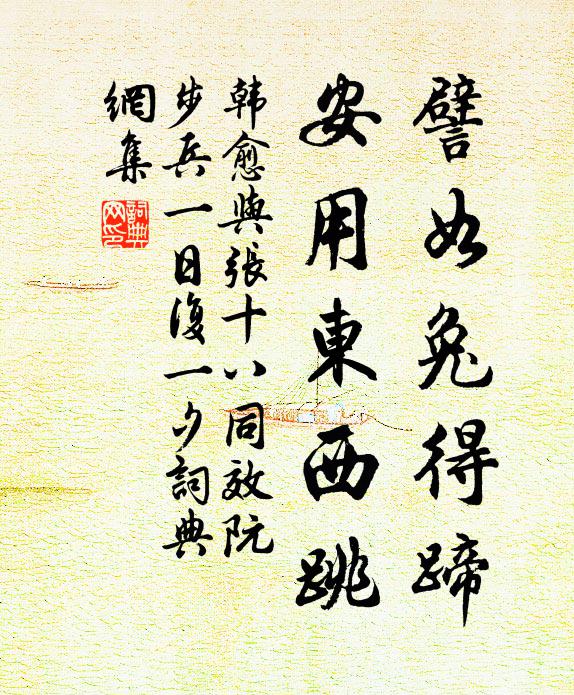 譬如兔得蹄
安用東西跳
韓愈與張十八同效阮
步兵一日復一夕詞典
網集
詞典
网印